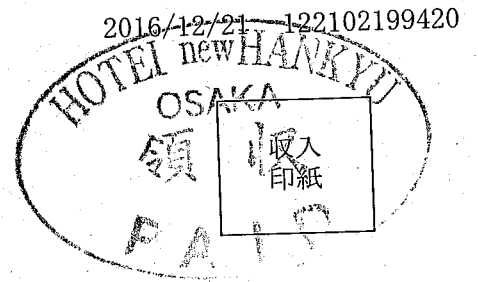 2016/12/21 122102199420
HOTEL new HANKYU
OSAKA
領収
収入
印紙
PAID